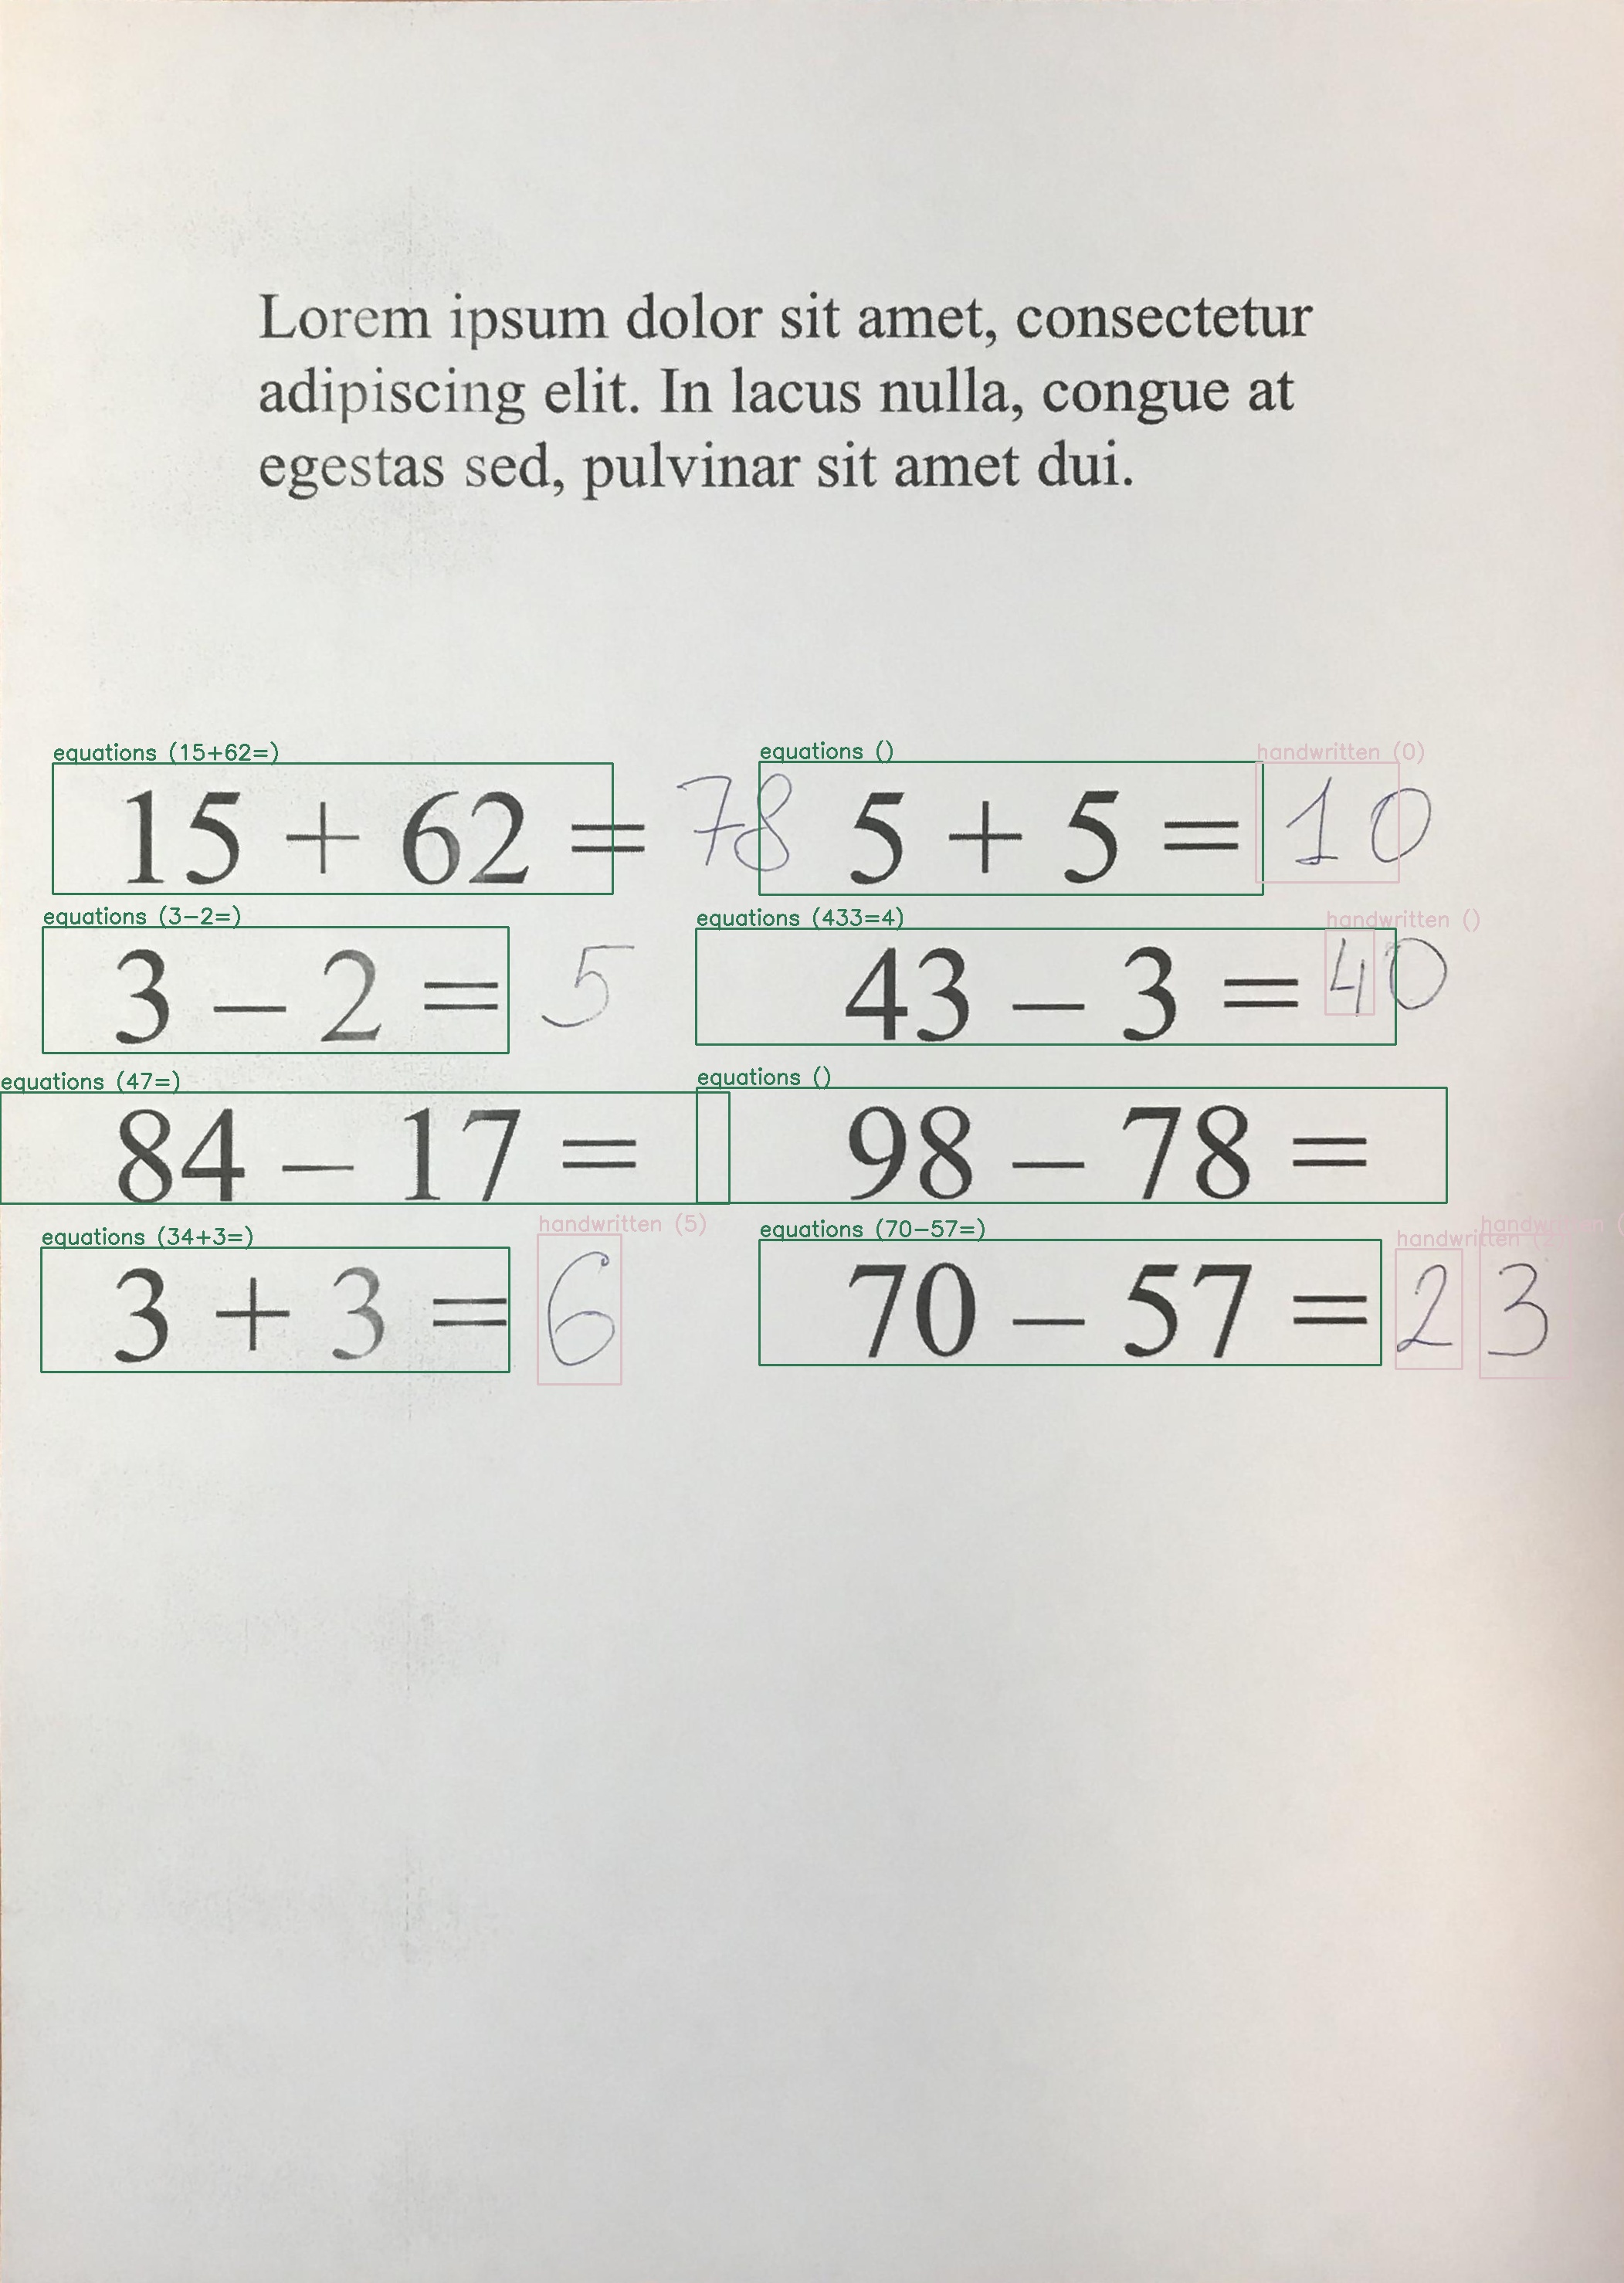 Lorem ipsum dolor sit amet, consectetur
adipiscing elit. In lacus nulla, congue at
egestas sed, pulvinar sit amet dui.
equations (15+62=) equations () handwritten (0)
15 + 62 = 78 5 + 5 = 10
equations (3-2=) equations (433=4) handwritten ()
3 – 2 = 5 43 – 3 = 40
equations (47=) equations ()
84 – 17 = 98 – 78 =
equations (34+3=) handwritten (5) equations (70-57=) handwritten handwritten
3 + 3 = 6 70 – 57 = 23